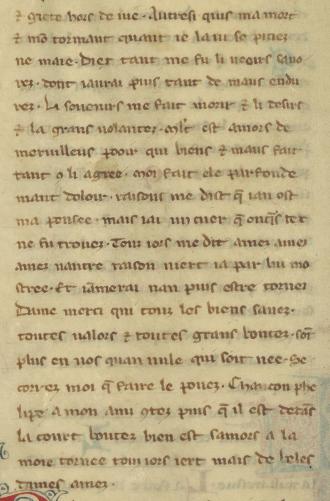 ⁊ giete hors de uie · Autresi quis ma mort
⁊ mō tormant quant ie la ui se pitiez
ne maie · Diex tant me fu li ueoirs sauo
rez · dont iaurai puis tant de maus endu
rez · Li souenirs me fait morir ⁊ li desirs
⁊ la grans uolantez · mlt est amors de
merueilleus pooir qui biens ⁊ maus fait
tant o li agree · moi fait ele par fonde
mant doloir · raisons me dist q̄ ian ost
ma pensee · mais iai un cuer q̄ onq̄s tex
ne fu trouez · Touz iors me dit amer amer
amer nautre raison niert ia par lui mo
stree · Et iamerai nan puis estre tornez
Dame merci qui touz les biens sauez ·
toutes ualors ⁊ toutes grans bontez · sōt
plus en uos quan nule qui soit nee · Se
corez moi q̄ faire le poez · Chancon phe
lipe a mon ami 9tez puis q̄ il est dedās
la court boutez bien est samors a la
moie tornee touz iors iert mais de beles
dames amez ·